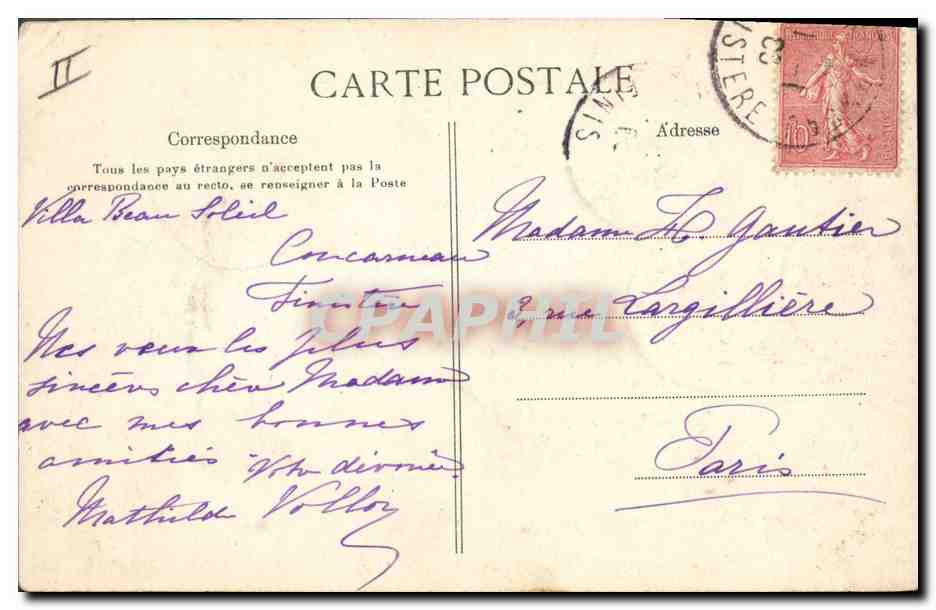 II
CARTE POSTALE
Correspondance
Tous les pays étrangers n'acceptent pas la
correspondance au recto, se renseigner à la Poste
Villa Beau Soleil
Concarneau
Finistère
Mes vœux les plus
sincères chère Madame
avec mes bonnes
amitiés Votre dévouée
Mathilde
Adresse
Madame H. Gautier
3, rue Largillière
Paris
FINIS
ISTERE
23
10
CPAPHIL